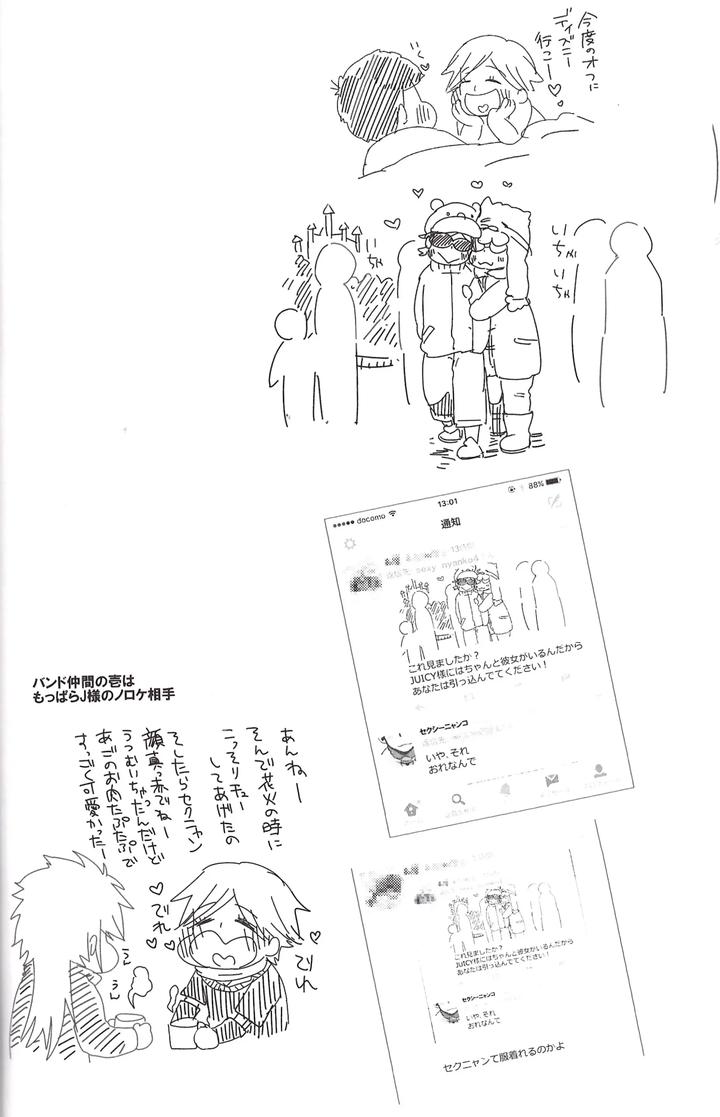 今度のオフに
ディズニー
行こー♡
いちゃ
いちゃ
いちゃ
docomo
13:01
88%
通知
13:10
返信先 sexy_nyanko4
これ見ましたか？
JUICY様にはちゃんと彼女がいるんだから
あなたは引っ込んでてください！
セクシーニャンコ
いや、それ
おれなんで
バンド仲間の壱は
もっぱらJ様のノロケ相手
あんねー
そんで花火の時に
こっそりチュー
してあげたの
そしたらセクニャン
顔真っ赤でねー
うつむいちゃったんだけど
あごのお肉たぷたぷで
すっごく可愛かったー
でれ
でれ
うん
うん
これ見ましたか？
JUICY様にはちゃんと彼女がいるんだから
あなたは引っ込んでてください！
セクシーニャンコ
いや、それ
おれなんで
セクニャンて服着れるのかよ